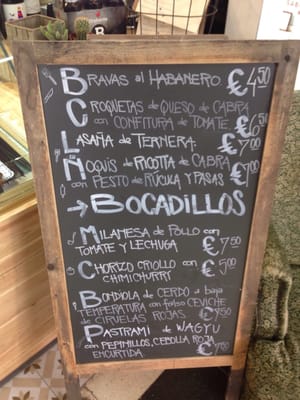 BRAVAS al HABANERO. €4,50
CROQUETAS de QUESO de CABRA
con CONFITURA de TOMATE. €6,50
LASAÑA de TERNERA: €7,00
ÑOQUIS de RICOTTA de CABRA
con PESTO de RUCULA Y PASAS €7,00
→ BOCADILLOS
MILANESA de POLLO con
TOMATE Y LECHUGA €7,50
CHORIZO CRIOLLO con
CHIMICHURRI €5,00
BONDIOLA de CERDO a baja
TEMPERATURA con falso CEVICHE
de CIRUELAS ROJAS. €9,50
PASTRAMI de WAGYU
con PEPINILLOS, CEBOLLA ROJA
ENCURTIDA.